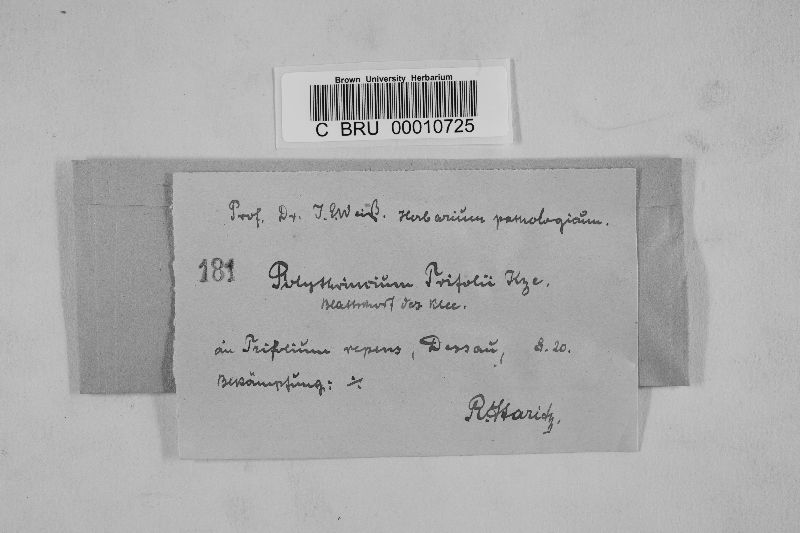 Brown University Herbarium
C BRU 00010725
Prof. Dr. J. E. Weiß. Herbarium pathologicum.
181 Polythrincium Trifolii Kze.
des Klee.
an Trifolium repens, Dessau, 8. 20.
Bekämpfung: ./.
R. Staritz.